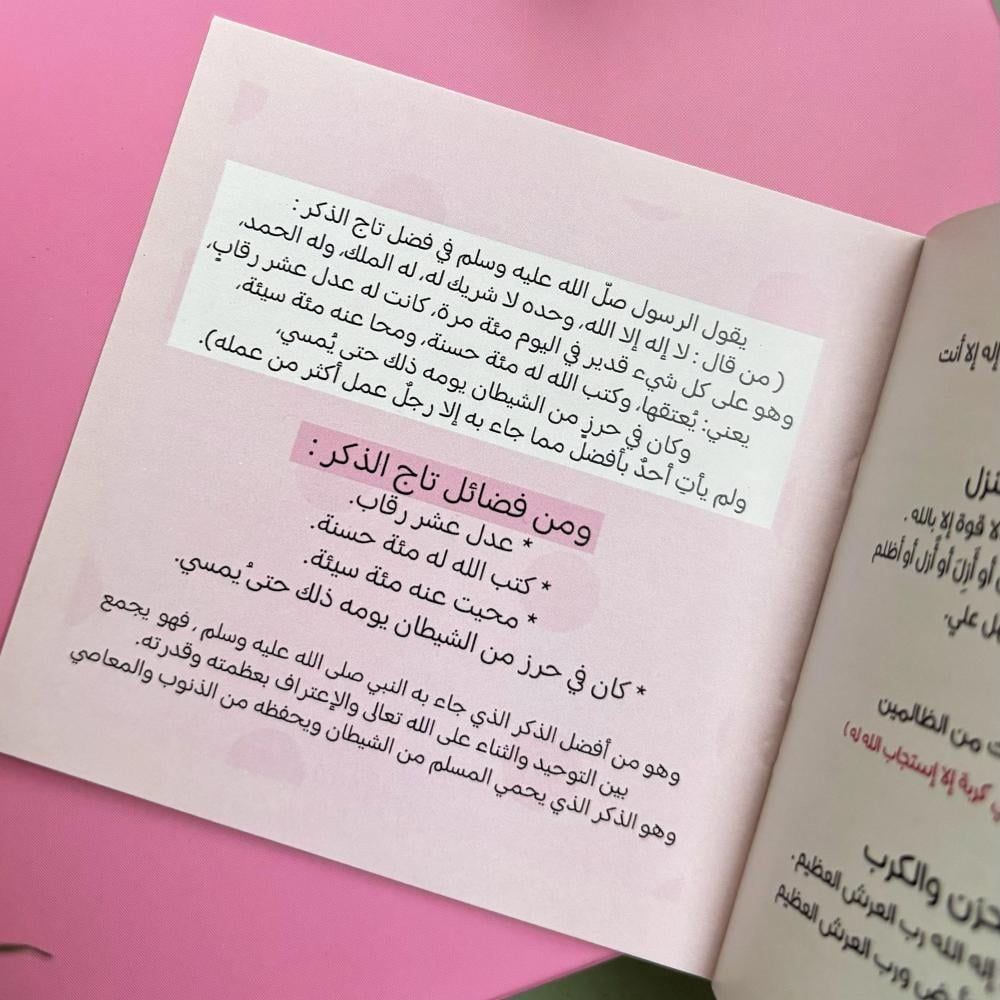 يقول الرسول صلّ الله عليه وسلم في فضل تاج الذكر :
( من قال : لا إله إلا الله، وحده لا شريك له، له الملك، وله الحمد،
وهو على كل شيء قدير في اليوم مئة مرة، كانت له عدل عشر رقابٍ،
يعني: يُعتقها، وكتب الله له مئة حسنة، ومحا عنه مئة سيئة،
وكان في حرزٍ من الشيطان يومه ذلك حتى يُمسي،
ولم يأتِ أحدٌ بأفضل مما جاء به إلا رجلٌ عمل أكثر من عمله).
ومن فضائل تاج الذكر :
* عدل عشر رقاب.
* كتب الله له مئة حسنة.
* محيت عنه مئة سيئة.
* كان في حرز من الشيطان يومه ذلك حتىُ يمسي.
وهو من أفضل الذكر الذي جاء به النبي صلى الله عليه وسلم , فهو يجمع
بين التوحيد والثناء على الله تعالى والإعتراف بعظمته وقدرته.
وهو الذكر الذي يحمي المسلم من الشيطان ويحفظه من الذنوب والمعاصي
إله إلا أنت
لا قوة إلا بالله .
أو أَزِلَ أو أُزل أو أظلم
علي.
من الظالمين
كربة إلا إستجاب الله له )
والكرب
إله الله رب العرش العظيم.
ورب العرش العظيم